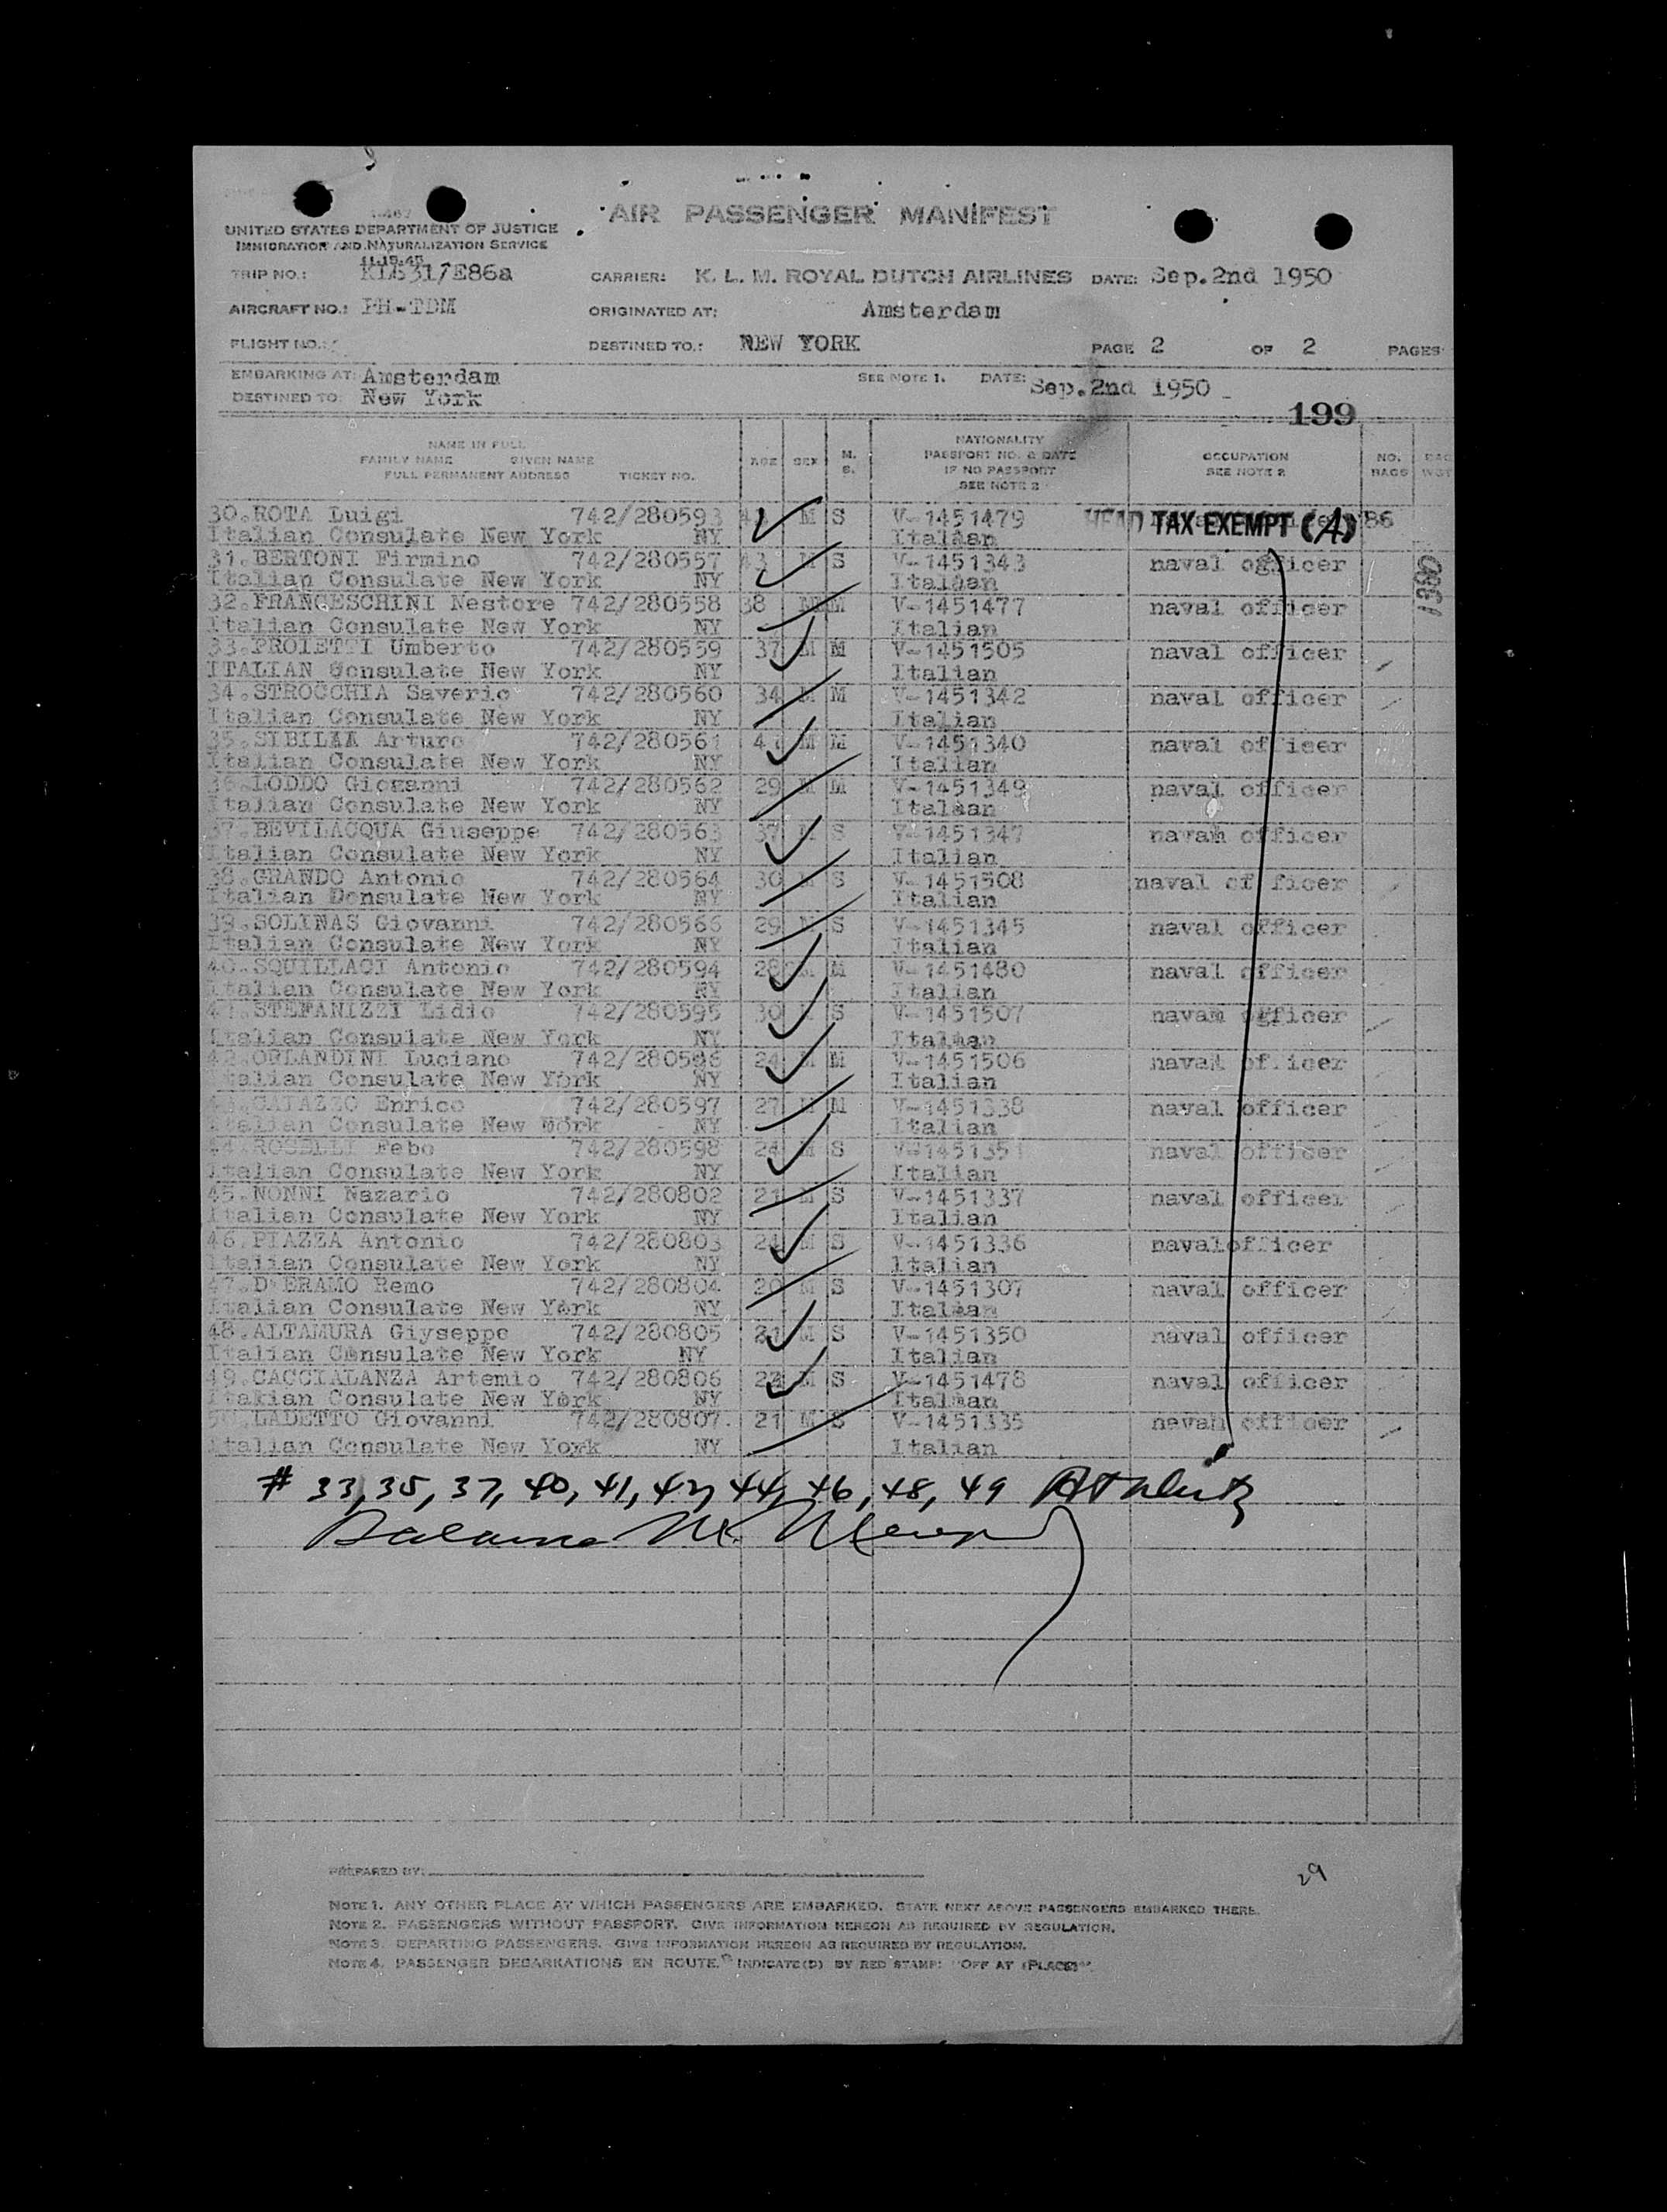 AIR PASSENGER MANIFEST
UNITED STATES DEPARTMENT OF JUSTICE
IMMIGRATION AND NATURALIZATION SERVICE
11-15-45
TRIP NO.: KL631/E86a CARRIER: K. L. M. ROYAL DUTCH AIRLINES DATE: Sep.2nd 1950
AIRCRAFT NO.: PH-TDM ORIGINATED AT: Amsterdam
FLIGHT NO.: DESTINED TO.: NEW YORK PAGE 2 OF 2 PAGES
EMBARKING AT: Amsterdam SEE NOTE 1. DATE: Sep.2nd 1950
DESTINED TO: New York
199
NAME IN FULL
FAMILY NAME GIVEN NAME
FULL PERMANENT ADDRESS TICKET NO.
AGE SEX M. S.
NATIONALITY
PASSPORT NO. & DATE
IF NO PASSPORT
SEE NOTE 2
OCCUPATION
SEE NOTE 2
NO. BAGS
30.ROTA Luigi 742/280593 M S V-1451479 HEAD TAX EXEMPT (A) 86
Italian Consulate New York NY Italian
31.BERTONI Firmino 742/280557 43 M S V-1451343 naval ogficer
Italian Consulate New York NY Italian
32.FRANCESCHINI Nestore 742/280558 38 M M V-1451477 naval officer
Italian Consulate New York NY Italian
33.PROIETTI Umberto 742/280559 37 M M V-1451505 naval officer
ITALIAN Consulate New York NY Italian
34.STROCCHIA Saverio 742/280560 34 M M V-1451342 naval officer
Italian Consulate New York NY Italian
35.SIBILAA Arturo 742/280561 M M V-1451340 naval officer
Italian Consulate New York NY Italian
36.LODDO Giovanni 742/280562 29 M M V-1451349 naval officer
Italian Consulate New York NY Italian
37.BEVILACQUA Giuseppe 742/280563 37 M S V-1451347 naval officer
Italian Consulate New York NY Italian
38.GRANDO Antonio 742/280564 30 M S V-1451508 naval of ficer
Italian Donsulate New York NY Italian
39.SOLINAS Giovanni 742/280566 29 M S V-1451345 naval officer
Italian Consulate New York NY Italian
40.SQUILLACI Antonio 742/280594 28 M M V-1451480 naval officer
Italian Consulate New York NY Italian
41.STEFANIZZI Lidio 742/280595 30 M S V-1451507 navam ogficer
Italian Consulate New York NY Italian
42.ORLANDINI Luciano 742/280596 24 M M V-1451506 naval officer
Italian Consulate New York NY Italian
43.CATAZZO Enrico 742/280597 27 M M V-1451338 naval officer
Italian Consulate New York NY Italian
44.ROSELLI Febo 742/280598 24 M S V-1451351 naval officer
Italian Consulate New York NY Italian
45.NONNI Nazario 742/280802 21 M S V-1451337 naval officer
Italian Consulate New York NY Italian
46.PIAZZA Antonio 742/280803 24 M S V-1451336 navalofficer
Italian Consulate New York NY Italian
47.D'ERAMO Remo 742/280804 20 M S V-1451307 naval officer
Italian Consulate New York NY Italian
48.ALTAMURA Giyseppe 742/280805 21 M S V-1451350 naval officer
Italian Consulate New York NY Italian
49.CACCIALANZA Artemio 742/280806 M S V-1451478 naval officer
Italian Consulate New York NY Italian
50.LADETTO Giovanni 742/280807. 21 M S V-1451335 naval officer
Italian Consulate New York NY Italian
# 33, 35, 37, 40, 41, 42, 44, 46, 48, 49
PREPARED BY:
29
NOTE 1. ANY OTHER PLACE AT WHICH PASSENGERS ARE EMBARKED. STATE NEXT ABOVE PASSENGERS EMBARKED THERE.
NOTE 2. PASSENGERS WITHOUT PASSPORT. GIVE INFORMATION HEREON AS REQUIRED BY REGULATION.
NOTE 3. DEPARTING PASSENGERS. GIVE INFORMATION HEREON AS REQUIRED BY REGULATION.
NOTE 4. PASSENGER DEBARKATIONS EN ROUTE. INDICATE(D) BY RED STAMP: "OFF AT (PLACE)".